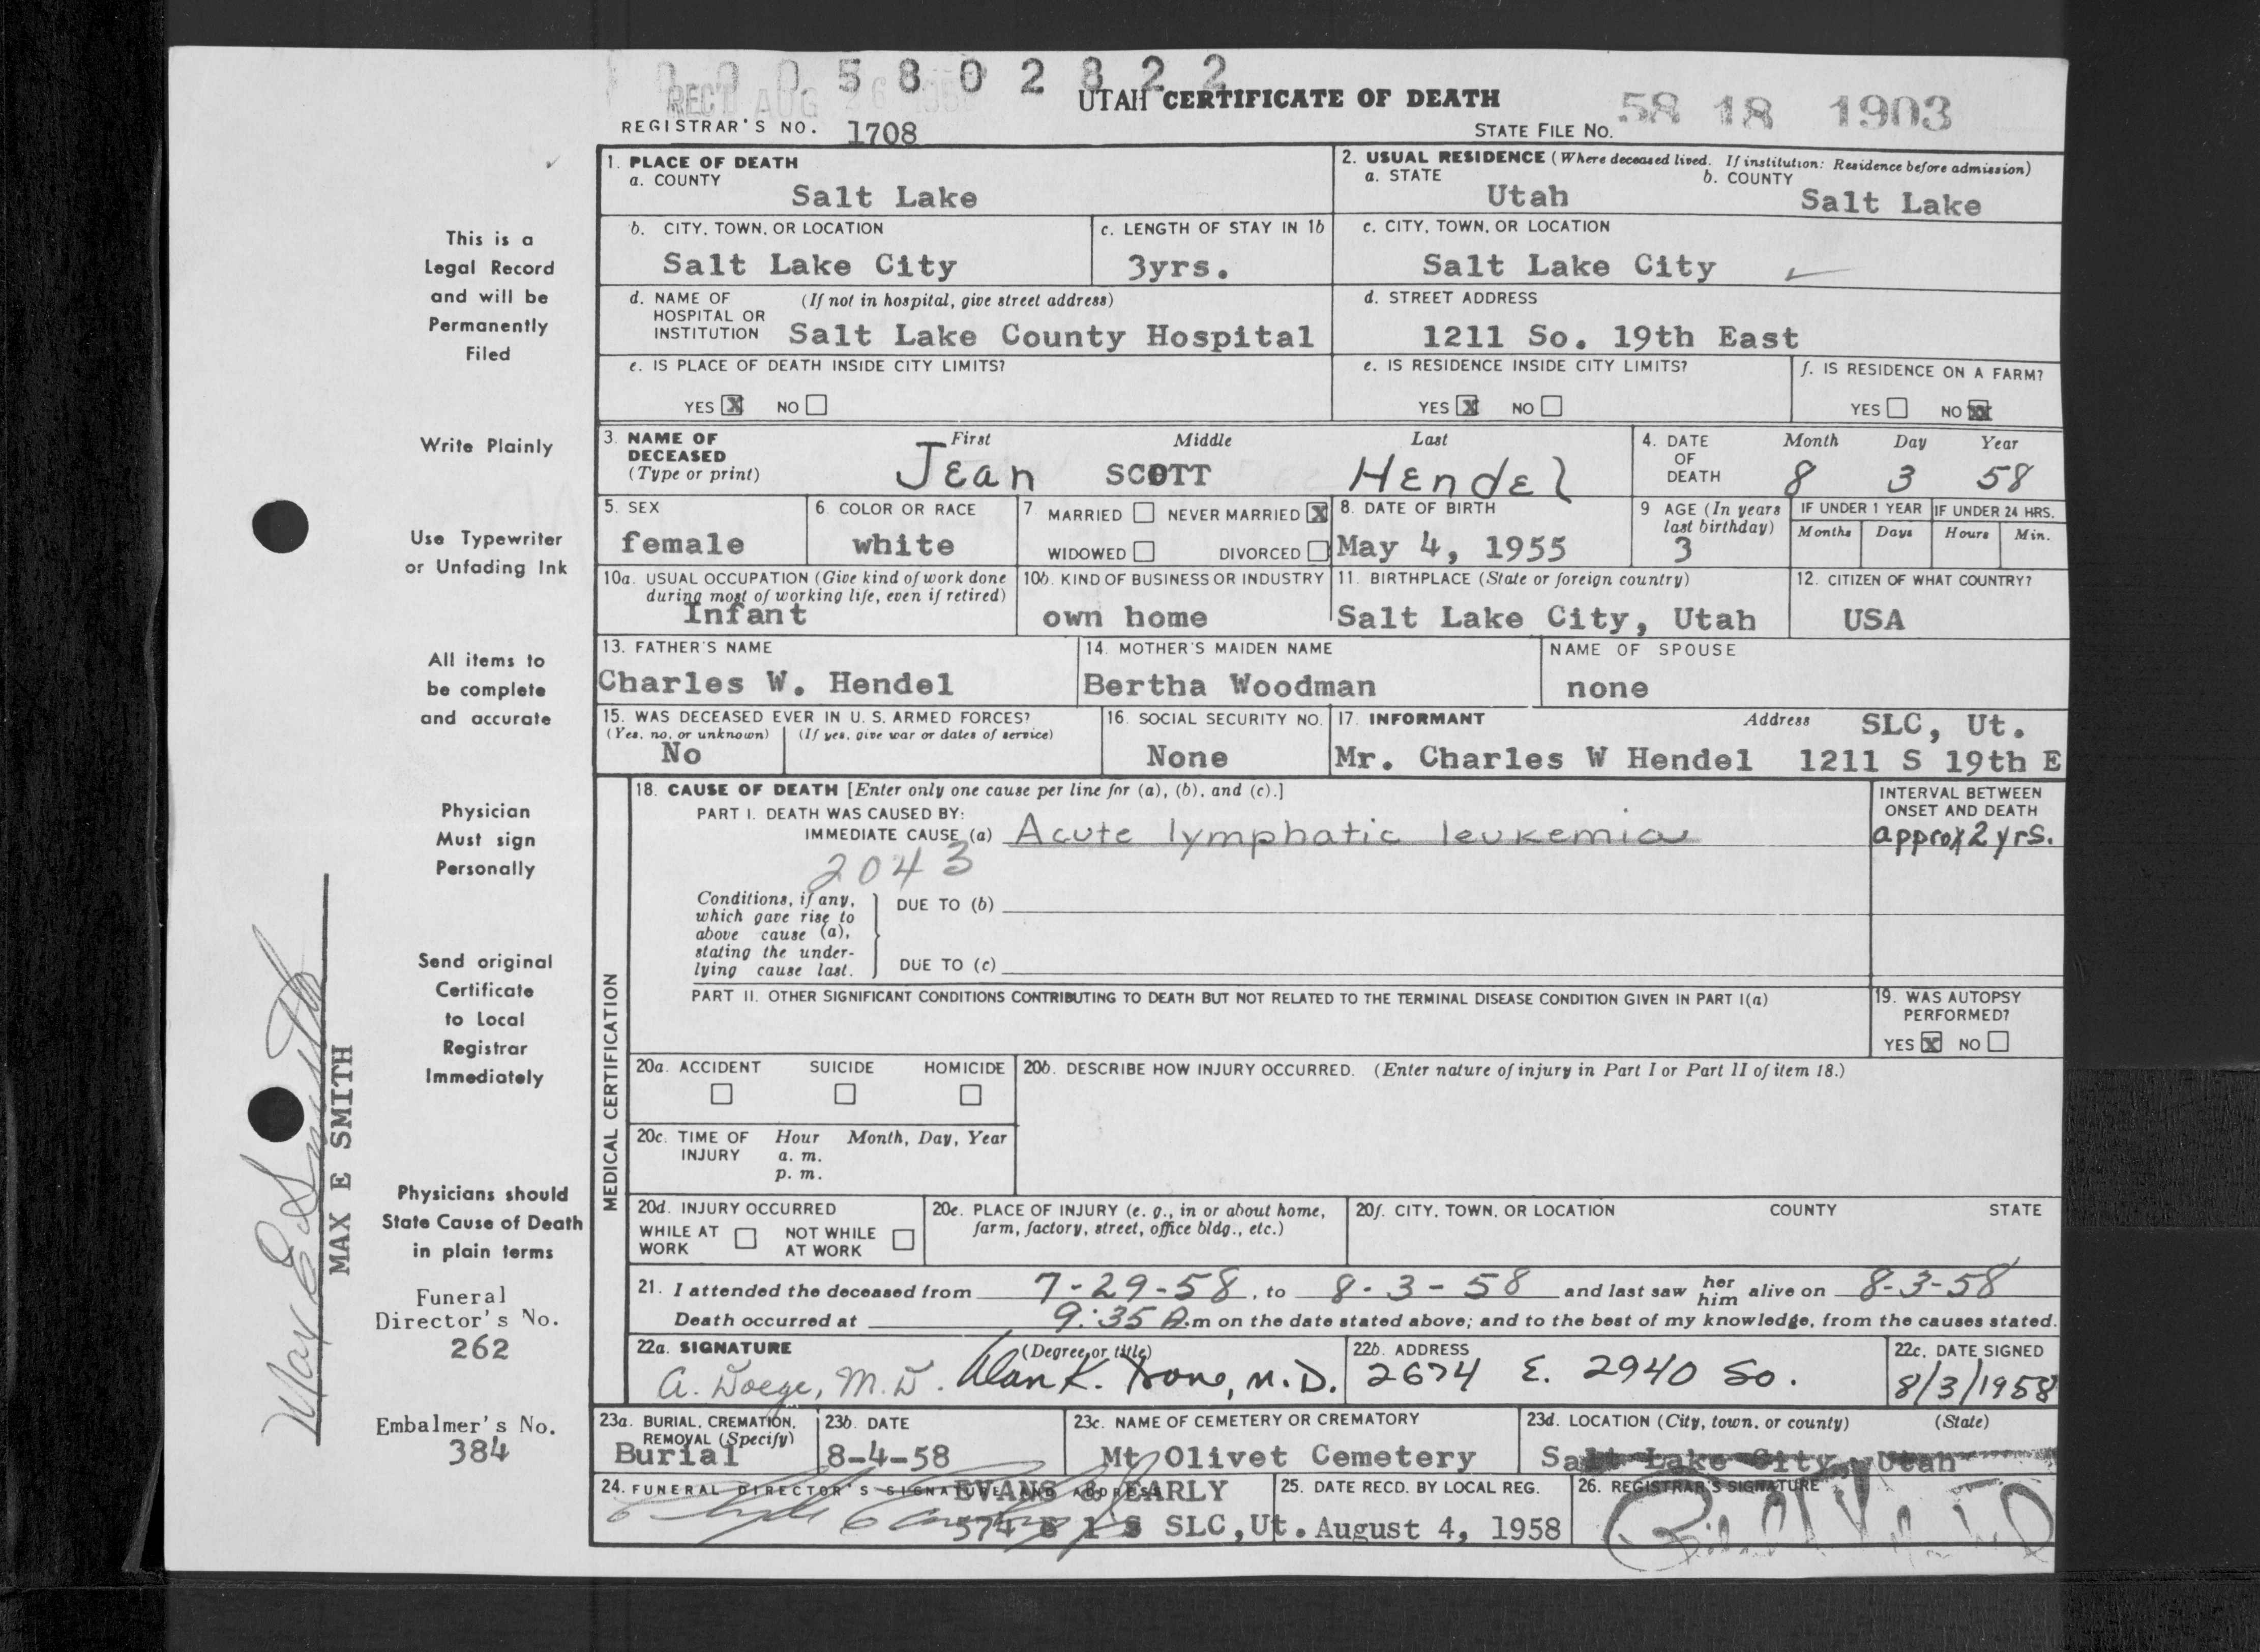 0 0 0 5 8 0 2 8 2 2
REC'D AUG 26
UTAH CERTIFICATE OF DEATH
58 18 1903
REGISTRAR'S NO. 1708
STATE FILE NO.
1. PLACE OF DEATH
a. COUNTY
Salt Lake
2. USUAL RESIDENCE (Where deceased lived. If institution: Residence before admission)
a. STATE
Utah
b. COUNTY
Salt Lake
b. CITY, TOWN, OR LOCATION
Salt Lake City
c. LENGTH OF STAY IN 1b
3yrs.
c. CITY, TOWN, OR LOCATION
Salt Lake City
d. NAME OF HOSPITAL OR INSTITUTION
(If not in hospital, give street address)
Salt Lake County Hospital
d. STREET ADDRESS
1211 So. 19th East
e. IS PLACE OF DEATH INSIDE CITY LIMITS?
YES X NO
e. IS RESIDENCE INSIDE CITY LIMITS?
YES X NO
f. IS RESIDENCE ON A FARM?
YES NO XX
3. NAME OF DECEASED
(Type or print)
First Middle Last
Jean SCOTT Hendel
4. DATE OF DEATH
Month Day Year
8 3 58
5. SEX
female
6. COLOR OR RACE
white
7 MARRIED NEVER MARRIED X
WIDOWED DIVORCED
8. DATE OF BIRTH
May 4, 1955
9 AGE (In years last birthday)
3
IF UNDER 1 YEAR
Months Days
IF UNDER 24 HRS.
Hours Min.
10a. USUAL OCCUPATION (Give kind of work done during most of working life, even if retired)
Infant
10b. KIND OF BUSINESS OR INDUSTRY
own home
11. BIRTHPLACE (State or foreign country)
Salt Lake City, Utah
12. CITIZEN OF WHAT COUNTRY?
USA
13. FATHER'S NAME
Charles W. Hendel
14. MOTHER'S MAIDEN NAME
Bertha Woodman
NAME OF SPOUSE
none
15. WAS DECEASED EVER IN U. S. ARMED FORCES?
(Yes, no, or unknown) (If yes, give war or dates of service)
No
16. SOCIAL SECURITY NO.
None
17. INFORMANT Address
SLC, Ut.
Mr. Charles W Hendel 1211 S 19th E
MEDICAL CERTIFICATION
18. CAUSE OF DEATH [Enter only one cause per line for (a), (b), and (c).]
PART I. DEATH WAS CAUSED BY:
IMMEDIATE CAUSE (a) Acute lymphatic leukemia
2043
INTERVAL BETWEEN ONSET AND DEATH
approx 2 yrs.
Conditions, if any, which gave rise to above cause (a), stating the underlying cause last.
DUE TO (b)
DUE TO (c)
PART II. OTHER SIGNIFICANT CONDITIONS CONTRIBUTING TO DEATH BUT NOT RELATED TO THE TERMINAL DISEASE CONDITION GIVEN IN PART I(a)
19. WAS AUTOPSY PERFORMED?
YES X NO
20a. ACCIDENT SUICIDE HOMICIDE
20b. DESCRIBE HOW INJURY OCCURRED. (Enter nature of injury in Part I or Part II of item 18.)
20c. TIME OF INJURY
Hour Month, Day, Year
a. m.
p. m.
20d. INJURY OCCURRED
WHILE AT WORK NOT WHILE AT WORK
20e. PLACE OF INJURY (e. g., in or about home, farm, factory, street, office bldg., etc.)
20f. CITY, TOWN, OR LOCATION COUNTY STATE
21. I attended the deceased from 7-29-58, to 8-3-58 and last saw her him alive on 8-3-58
Death occurred at 9:35 A.m on the date stated above; and to the best of my knowledge, from the causes stated.
22a. SIGNATURE (Degree or title)
A. Doege, M.D. Alan K. M.D.
22b. ADDRESS
2674 E. 2940 So.
22c. DATE SIGNED
8/3/1958
23a. BURIAL, CREMATION, REMOVAL (Specify)
Burial
23b. DATE
8-4-58
23c. NAME OF CEMETERY OR CREMATORY
Mt Olivet Cemetery
23d. LOCATION (City, town, or county) (State)
Salt Lake City, Utah
24. FUNERAL DIRECTOR'S SIGNATURE AND ADDRESS
EVANS & EARLY
574 E 1 S SLC, Ut.
25. DATE RECD. BY LOCAL REG.
August 4, 1958
26. REGISTRAR'S SIGNATURE
This is a
Legal Record
and will be
Permanently
Filed
Write Plainly
Use Typewriter
or Unfading Ink
All items to
be complete
and accurate
Physician
Must sign
Personally
Send original
Certificate
to Local
Registrar
Immediately
Physicians should
State Cause of Death
in plain terms
Funeral
Director's No.
262
Embalmer's No.
384
Max E Smith
MAX E SMITH